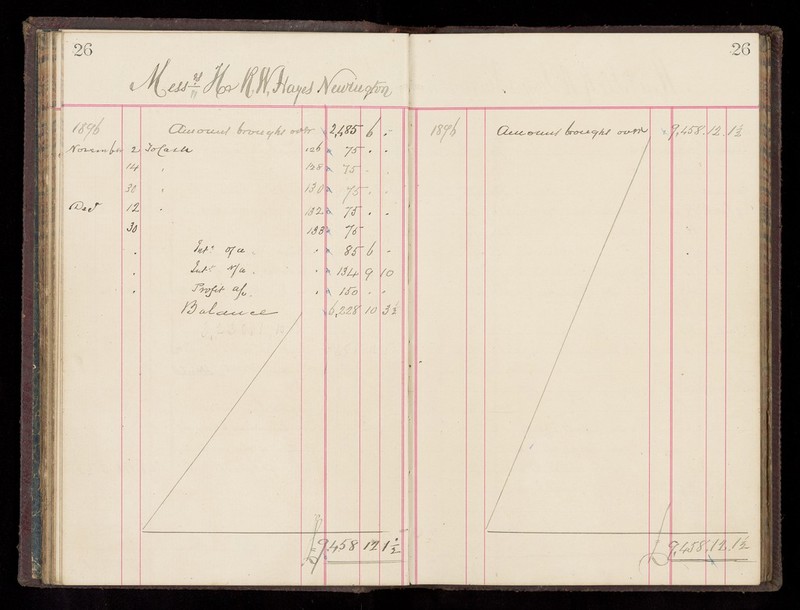 26
26
Messrs H & R.W. Hayes Newington
1896 Amount brought over 2,485 6 -
November 2 To Cash 126 75 . .
14 " 128 75 . .
30 " 130 75 . .
Decr 12 " 132 75 . .
30 133 75
. Intt o/a . . 85 6 -
. Intt N/a . . 134 9 10
. Profit a/c . . 150 . .
Balance 6,228 10 3½
£9,458 12 1½
1896 Amount brought over 9,458. 12. 1½
£9,458. 12. 1½